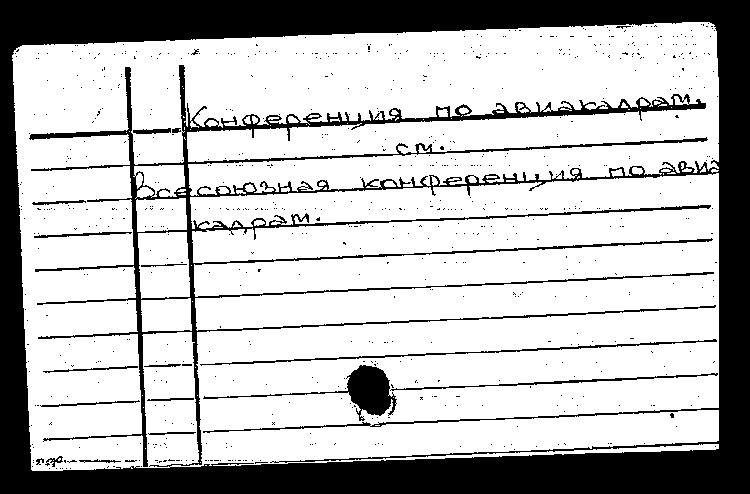 Конференция по авиакадрам.
см.
Всесоюзная конференция по авиа
кадрам.